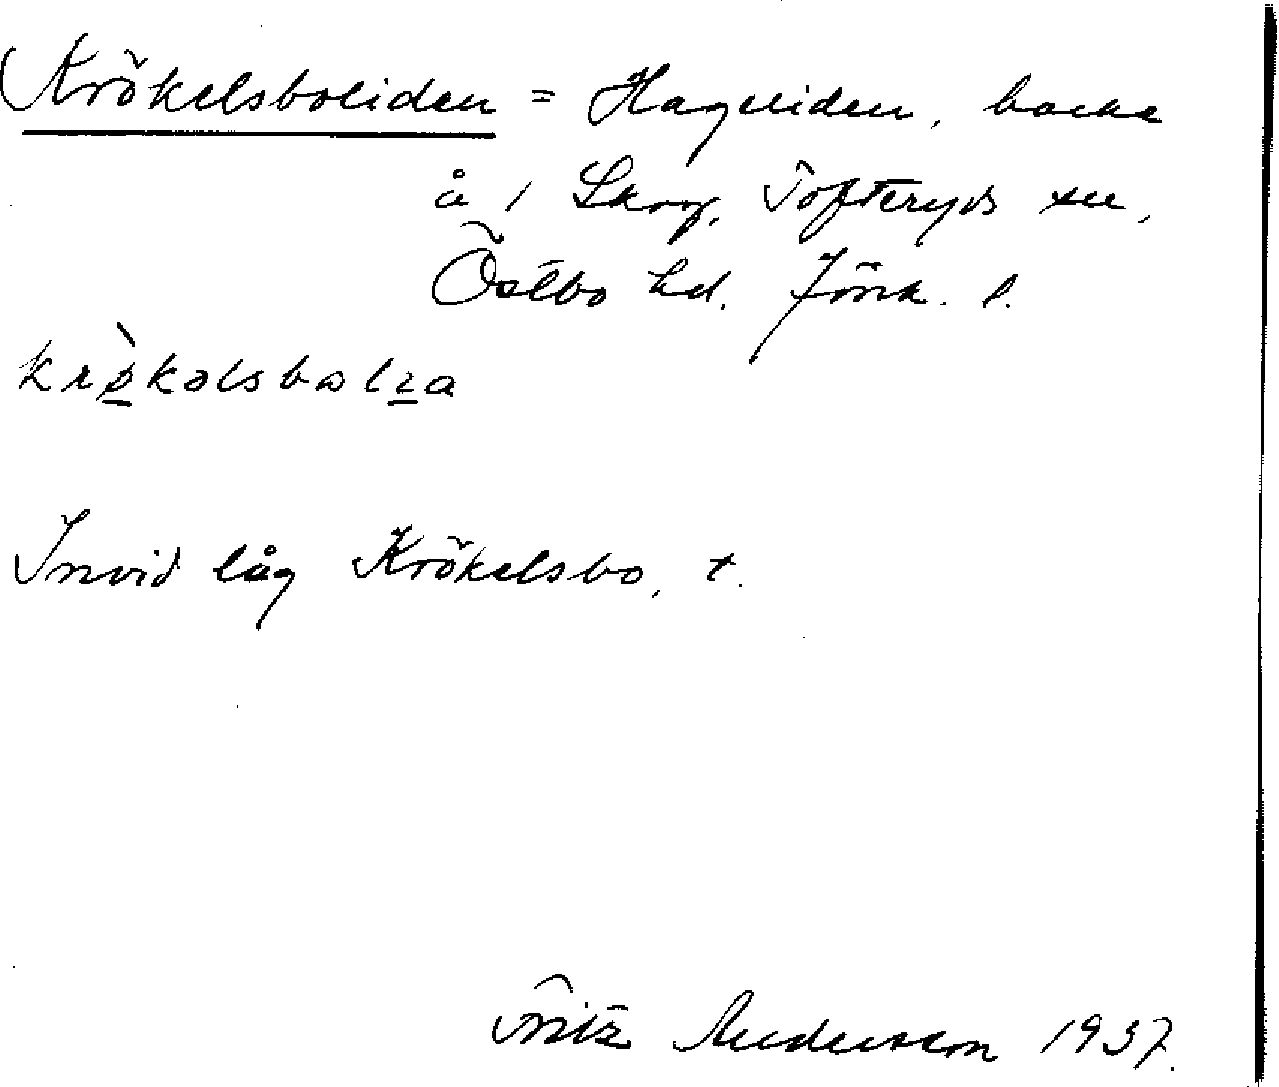 Krökelsboliden = Hagaliden, backe
å 1 Skog, Tofteryds sn,
Östbo hd. Jönk. l.
krø̀kəlsbolɩa
Invid låg Krökelsbo, t.
Fritz Andersson 1937.